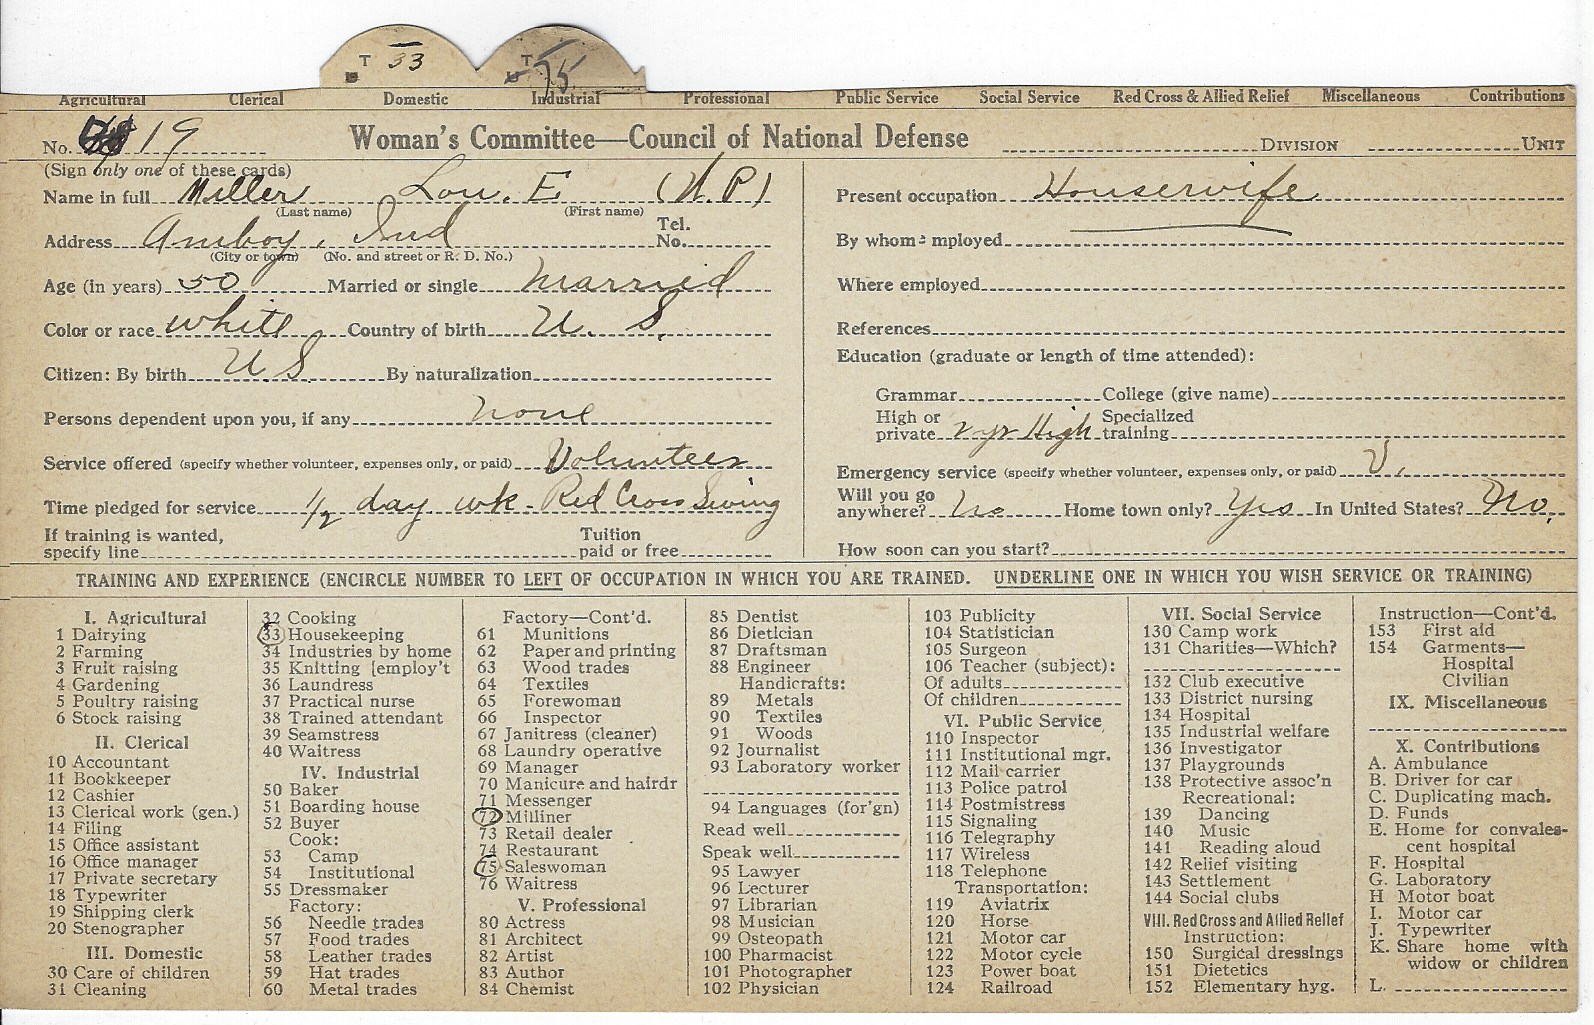 T 33 T 75
Agricultural Clerical Domestic Industrial Professional Public Service Social Service Red Cross & Allied Relief Miscellaneous Contributions
No. 19 Woman's Committee—Council of National Defense DIVISION UNIT
(Sign only one of these cards)
Name in full Miller Lou. E (W.P.)
(Last name) (First name)
Address Amboy, Ind Tel. No.
(City or town) (No. and street or R. D. No.)
Age (in years) 50 Married or single married
Color or race white Country of birth U. S.
Citizen: By birth U.S. By naturalization
Persons dependent upon you, if any none
Service offered (specify whether volunteer, expenses only, or paid) Volunteer
Time pledged for service 1/2 day wk - Red Cross Sewing
If training is wanted, specify line Tuition paid or free
Present occupation Housewife
By whom employed
Where employed
References
Education (graduate or length of time attended):
Grammar College (give name)
High or private 2 yr High Specialized training
Emergency service (specify whether volunteer, expenses only, or paid) V.
Will you go anywhere? No Home town only? Yes In United States? No.
How soon can you start?
TRAINING AND EXPERIENCE (ENCIRCLE NUMBER TO LEFT OF OCCUPATION IN WHICH YOU ARE TRAINED. UNDERLINE ONE IN WHICH YOU WISH SERVICE OR TRAINING)
I. Agricultural
1 Dairying
2 Farming
3 Fruit raising
4 Gardening
5 Poultry raising
6 Stock raising
II. Clerical
10 Accountant
11 Bookkeeper
12 Cashier
13 Clerical work (gen.)
14 Filing
15 Office assistant
16 Office manager
17 Private secretary
18 Typewriter
19 Shipping clerk
20 Stenographer
III. Domestic
30 Care of children
31 Cleaning
32 Cooking
33 Housekeeping
34 Industries by home
35 Knitting [employ't
36 Laundress
37 Practical nurse
38 Trained attendant
39 Seamstress
40 Waitress
IV. Industrial
50 Baker
51 Boarding house
52 Buyer
Cook:
53 Camp
54 Institutional
55 Dressmaker
Factory:
56 Needle trades
57 Food trades
58 Leather trades
59 Hat trades
60 Metal trades
Factory—Cont'd.
61 Munitions
62 Paper and printing
63 Wood trades
64 Textiles
65 Forewoman
66 Inspector
67 Janitress (cleaner)
68 Laundry operative
69 Manager
70 Manicure and hairdr
71 Messenger
72 Milliner
73 Retail dealer
74 Restaurant
75 Saleswoman
76 Waitress
V. Professional
80 Actress
81 Architect
82 Artist
83 Author
84 Chemist
85 Dentist
86 Dietician
87 Draftsman
88 Engineer
Handicrafts:
89 Metals
90 Textiles
91 Woods
92 Journalist
93 Laboratory worker
94 Languages (for'gn)
Read well
Speak well
95 Lawyer
96 Lecturer
97 Librarian
98 Musician
99 Osteopath
100 Pharmacist
101 Photographer
102 Physician
103 Publicity
104 Statistician
105 Surgeon
106 Teacher (subject):
Of adults
Of children
VI. Public Service
110 Inspector
111 Institutional mgr.
112 Mail carrier
113 Police patrol
114 Postmistress
115 Signaling
116 Telegraphy
117 Wireless
118 Telephone
Transportation:
119 Aviatrix
120 Horse
121 Motor car
122 Motor cycle
123 Power boat
124 Railroad
VII. Social Service
130 Camp work
131 Charities—Which?
132 Club executive
133 District nursing
134 Hospital
135 Industrial welfare
136 Investigator
137 Playgrounds
138 Protective assoc'n
Recreational:
139 Dancing
140 Music
141 Reading aloud
142 Relief visiting
143 Settlement
144 Social clubs
VIII. Red Cross and Allied Relief
Instruction:
150 Surgical dressings
151 Dietetics
152 Elementary hyg.
Instruction—Cont'd.
153 First aid
154 Garments—
Hospital
Civilian
IX. Miscellaneous
X. Contributions
A. Ambulance
B. Driver for car
C. Duplicating mach.
D. Funds
E. Home for convales-
cent hospital
F. Hospital
G. Laboratory
H Motor boat
I. Motor car
J. Typewriter
K. Share home with
widow or children
L.